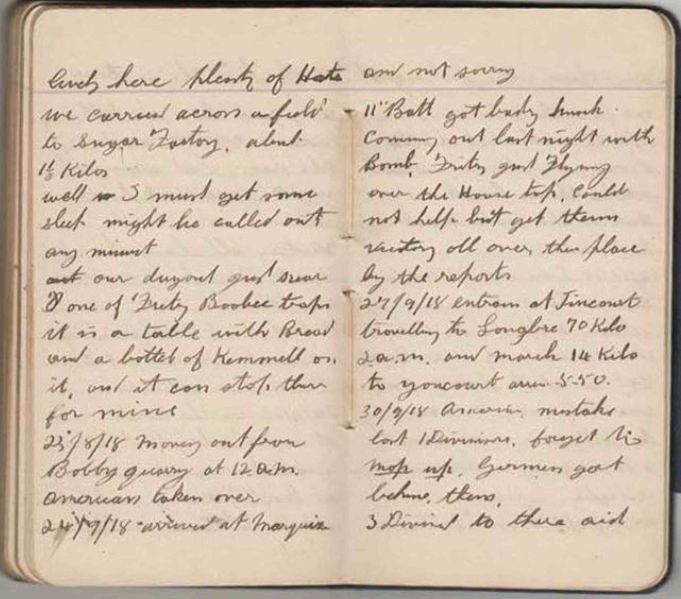 lively here plenty of Hate
we carried across a field
to Sugar Factory, about
1½ Kilos
well I must get some
sleep might be called out
any minuet
our dugout just near
one of Fritz Boobee traps
it is a table with Bread
and a bottel of Kemmell on
it, and it can stop there
for mine
23/8/18 Moving out from
Bobby quarry at 12 a.m.
americans taken over
24/9/18 arrived at Marquix
and not sorry
11" Batt got badly knock
coming out last night with
Bomb, Fritz just Flying
over the House top, could
not help but get them
all over the place
by the reports
27/9/18 entrain at Tincourt
travelling to Longbre 70 Kilo
2 a.m. and march 14 Kilo
to youcourt arriv 5-50.
30/9/18 American, mistake
lost 1 Divisions, forget to
mop up. Germen got
behine, them,
3 Divined to there aid